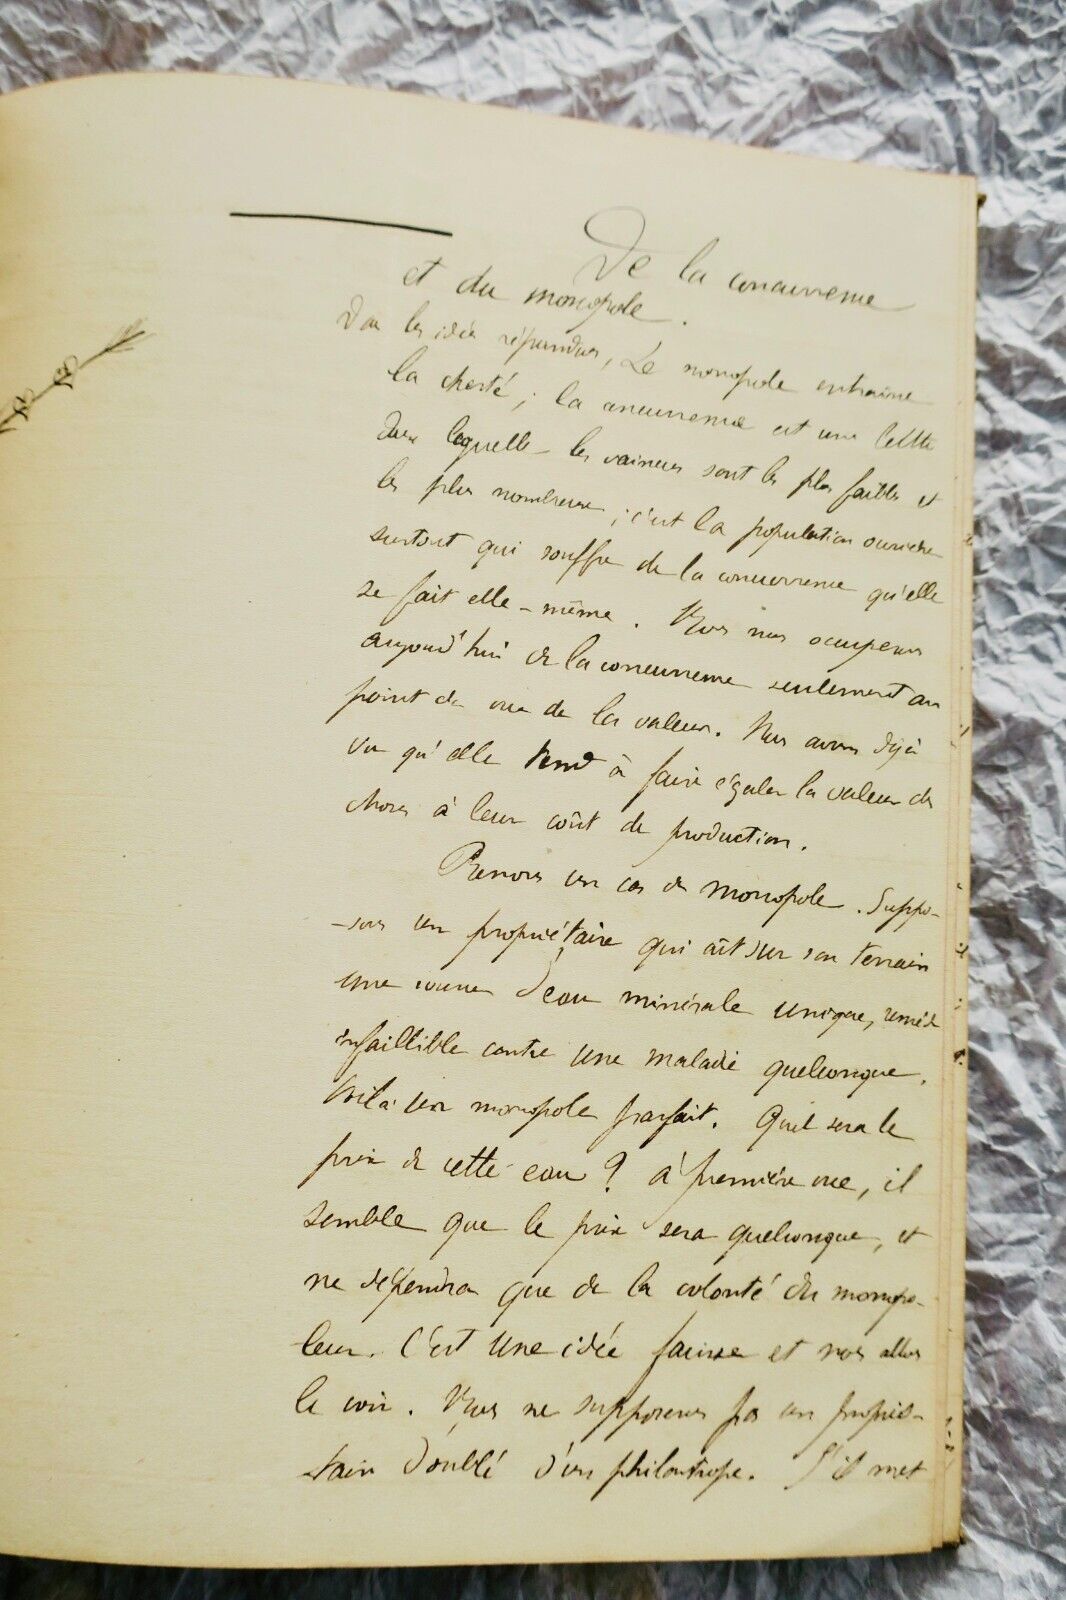 De la concurrence
et du monopole.
Dans les idées répandues, Le monopole entraîne
la cherté; la concurrence est une lutte
dans laquelle les vaincus sont les plus faibles et
les plus nombreux; c'est la population ouvrière
surtout qui souffre de la concurrence qu'elle
se fait elle-même. Nous nous occuperons
aujourd'hui de la concurrence seulement au
point de vue de la valeur. Nous avons déjà
vu qu'elle tend à faire égaler la valeur des
choses à leur coût de production.
Prenons un cas de monopole. Suppo-
-sons un propriétaire qui ait sur son terrain
une source d'eau minérale unique, remède
infaillible contre une maladie quelconque.
Voilà un monopole parfait. Quel sera le
prix de cette eau? à première vue, il
semble que le prix sera quelconque, et
ne dépendra que de la volonté du monopo-
leur. C'est une idée fausse et nous allons
le voir. Nous ne supposerons pas un proprié-
taire doublé d'un philantrope. S'il met